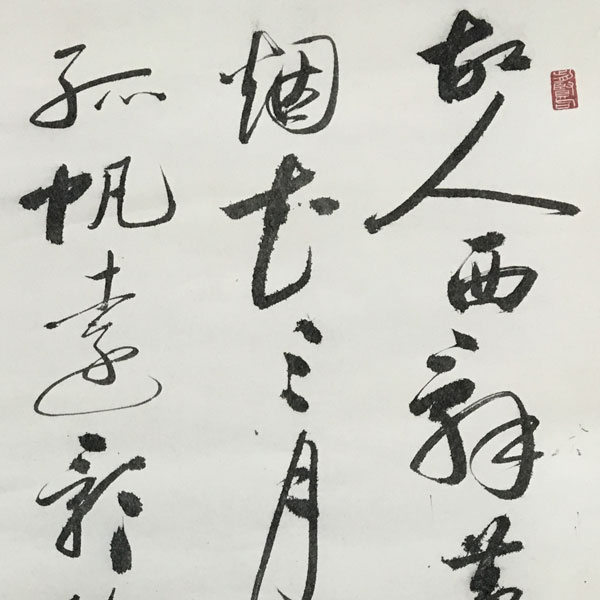 故人西辞黄
烟花三月
孤帆遠影